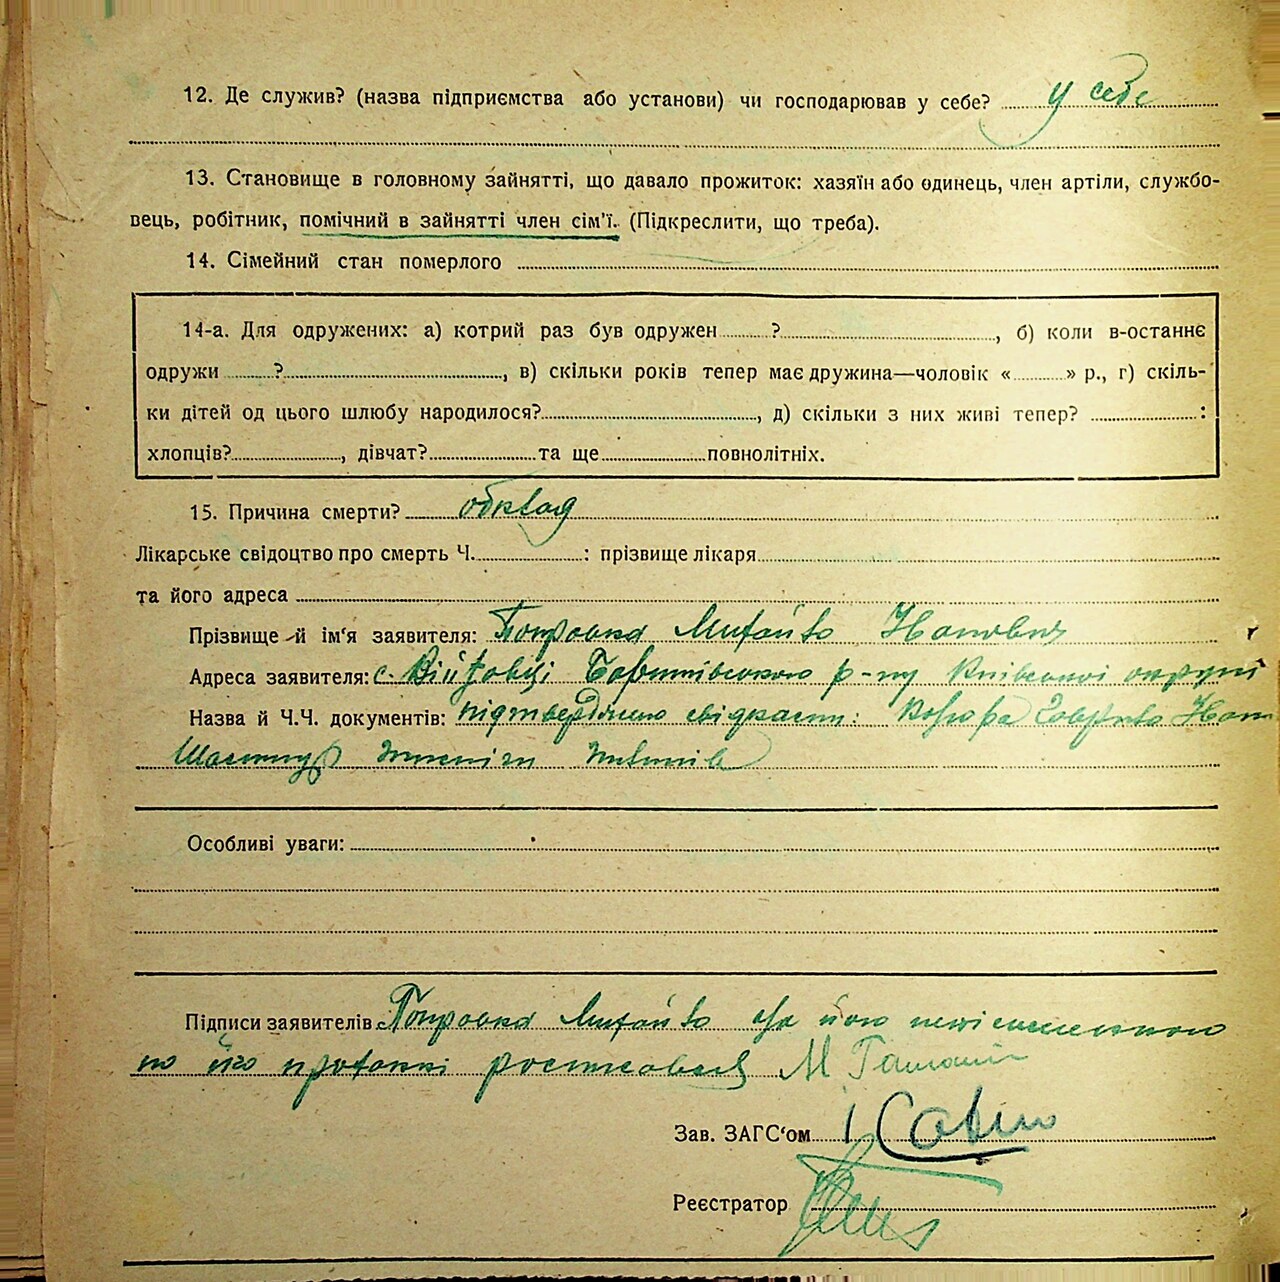 12. Де служив? (назва підприємства або установи) чи господарював у себе? у себе
13. Становище в головному зайнятті, що давало прожиток: хазяїн або одинець, член артіли, службо-
вець, робітник, помічний в зайнятті член сім'ї. (Підкреслити, що треба).
14. Сімейний стан померлого
14-а. Для одружених: а) котрий раз був одружен ?, б) коли в-останнє
одружи ?, в) скільки років тепер має дружина—чоловік « » р., г) скіль-
ки дітей од цього шлюбу народилося?, д) скільки з них живі тепер? :
хлопців?, дівчат? та ще повнолітніх.
15. Причина смерти? обклад
Лікарське свідоцтво про смерть Ч. : прізвище лікаря
та його адреса
Прізвище й ім'я заявителя: Михайло
Адреса заявителя: с. Війтовці Баришівського р-ну Київської округи
Назва й Ч.Ч. документів: підтверджено свідками:
Особливі уваги:
Підписи заявителів Михайло а за його неписьменного
по його проханні росписався М
Зав. ЗАГС'ом
Реєстратор